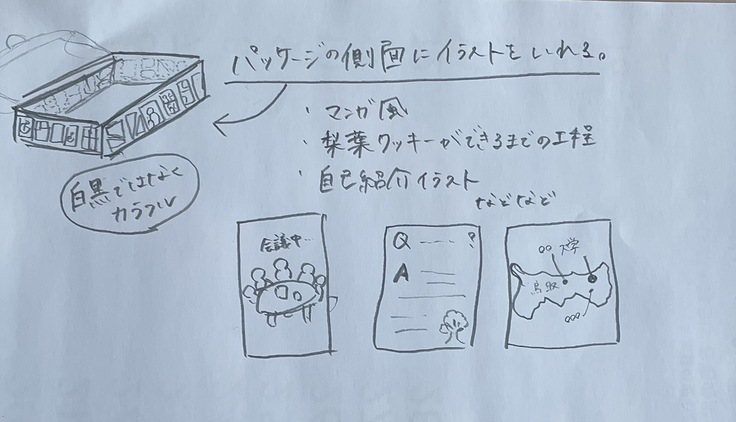 パッケージの側面にイラストをいれる。
・マンガ風
・梨葉クッキーができるまでの工程
・自己紹介イラスト
などなど
白黒ではなく
カラフル
会議中…
Q ---- ?
A
○○大学
鳥取
○○○